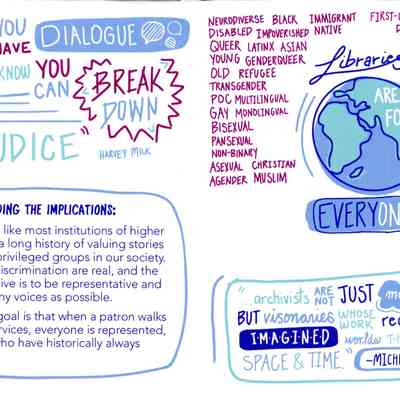 YOU
HAVE DIALOGUE
KNOW YOU
CAN BREAK
DOWN
UDICE"
HARVEY MILK
DING THE IMPLICATIONS:
like most institutions of higher
a long history of valuing stories
privileged groups in our society.
iscrimination are real, and the
ive is to be representative and
ny voices as possible.
goal is that when a patron walks
rvices, everyone is represented,
ho have historically always
NEURODIVERSE BLACK IMMIGRANT FIRST-
DISABLED IMPOVERISHED NATIVE D
QUEER LATINX ASIAN
YOUNG GENDERQUEER
OLD REFUGEE
TRANSGENDER
POC MULTILINGUAL
GAY MONOLINGUAL
BISEXUAL
PANSEXUAL
NON-BINARY
ASEXUAL CHRISTIAN
AGENDER MUSLIM
Libraries
ARE
FO
EVERYON
"...archivists ARE NOT JUST m
BUT visionaries WHOSE WORK re
IMAGINED worlds TH
SPACE & TIME."
-MICH